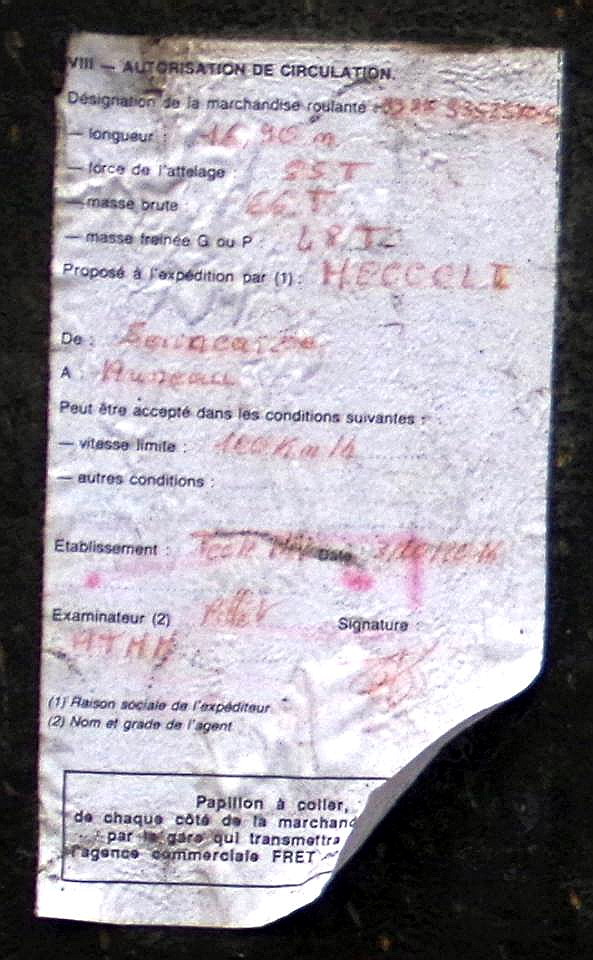 VIII — AUTORISATION DE CIRCULATION.
Désignation de la marchandise roulante :
— longueur : 16,90 m
— force de l'attelage : 85 T
— masse brute : 66 T
— masse freinée G ou P :
Proposé à l'expédition par (1) :
De :
A : Auneau
Peut être accepté dans les conditions suivantes :
— vitesse limite : 100 Km/h
— autres conditions :
Etablissement : Date
Examinateur (2) Signature :
(1) Raison sociale de l'expéditeur
(2) Nom et grade de l'agent
Papillon à coller,
de chaque côté de la marchand
par la gare qui transmettra
l'agence commerciale FRET